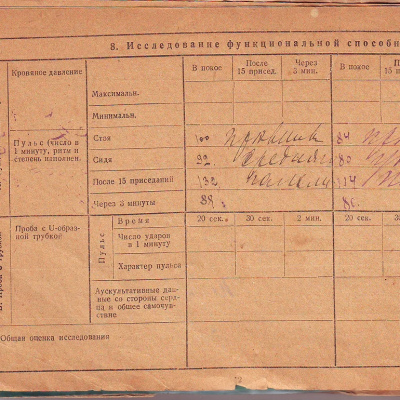 8. Исследование функциональной способн
Кровяное давление
В покое
После 15 присед.
Через 3 мин.
В покое
П
15 п
Максимальн.
Минимальн.
Пульс (число в 1 минуту, ритм и степень наполнен.
Стоя
100
84
Сидя
92
80
После 15 приседаний
132
114
Через 3 минуты
88
86
Проба с U-образной трубкой
Пульс
Время
20 сек.
30 сек.
2 мин.
20 сек.
3
Число ударов в 1 минуту
Характер пульса
Аускультативные данные со стороны сердца и общее самочувствие
Общая оценка исследования